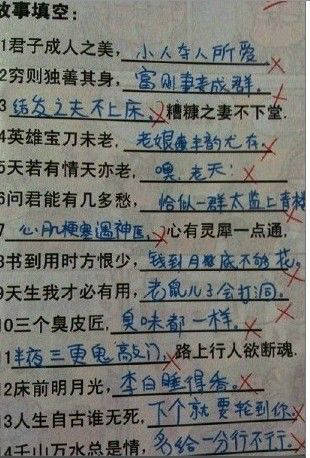 故事填空:
1君子成人之美，小人夺人所爱。
2穷则独善其身，富则妻妾成群。
3结发之夫不上床，糟糠之妻不下堂.
4英雄宝刀未老，老娘风韵尤存。
5天若有情天亦老，嘿，老天!
6问君能有几多愁，恰似一群太监上青楼
7心肌梗塞遇神医，心有灵犀一点通，
8书到用时方恨少，钱到月底不够花。
9天生我才必有用，老鼠儿子会打洞。
10三个臭皮匠，臭味都一样。
11半夜三更鬼敲门，路上行人欲断魂.
12床前明月光，李白睡得香。
13人生自古谁无死，下个就要轮到你
14千山万水总是情，多给一分行不行。